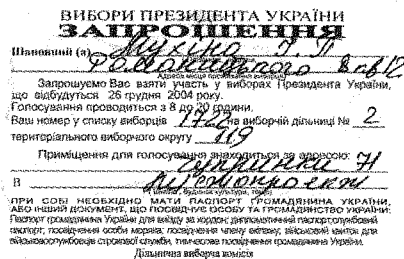 ВИБОРИ ПРЕЗИДЕНТА УКРАЇНИ
ЗАПРОШЕННЯ
Шановний (а) Мухіна
8 кв 12
Запрошуємо Вас взяти участь у виборах Президента України,
що відбудуться 26 грудня 2004 року.
Голосування проводиться з 8 до 20 години.
Ваш номер у списку виборців на виборчій дільниці № 2
територіального виборчого округу 119
Приміщення для голосування знаходиться за адресою:
В
ПРИ СОБІ НЕОБХІДНО МАТИ ПАСПОРТ ГРОМАДЯНИНА УКРАЇНИ,
АБО ІНШИЙ ДОКУМЕНТ, ЩО ПОСВІДЧУЄ ОСОБУ ТА ГРОМАДЯНСТВО УКРАЇНИ:
Паспорт громадянина України для виїзду за кордон; дипломатичний паспорт; службовий
паспорт; посвідчення особи моряка; посвідчення члена екіпажу; військовий квиток для
військовослужбовців строкової служби, тимчасове посвідчення громадянина України.
Дільнична виборча комісія